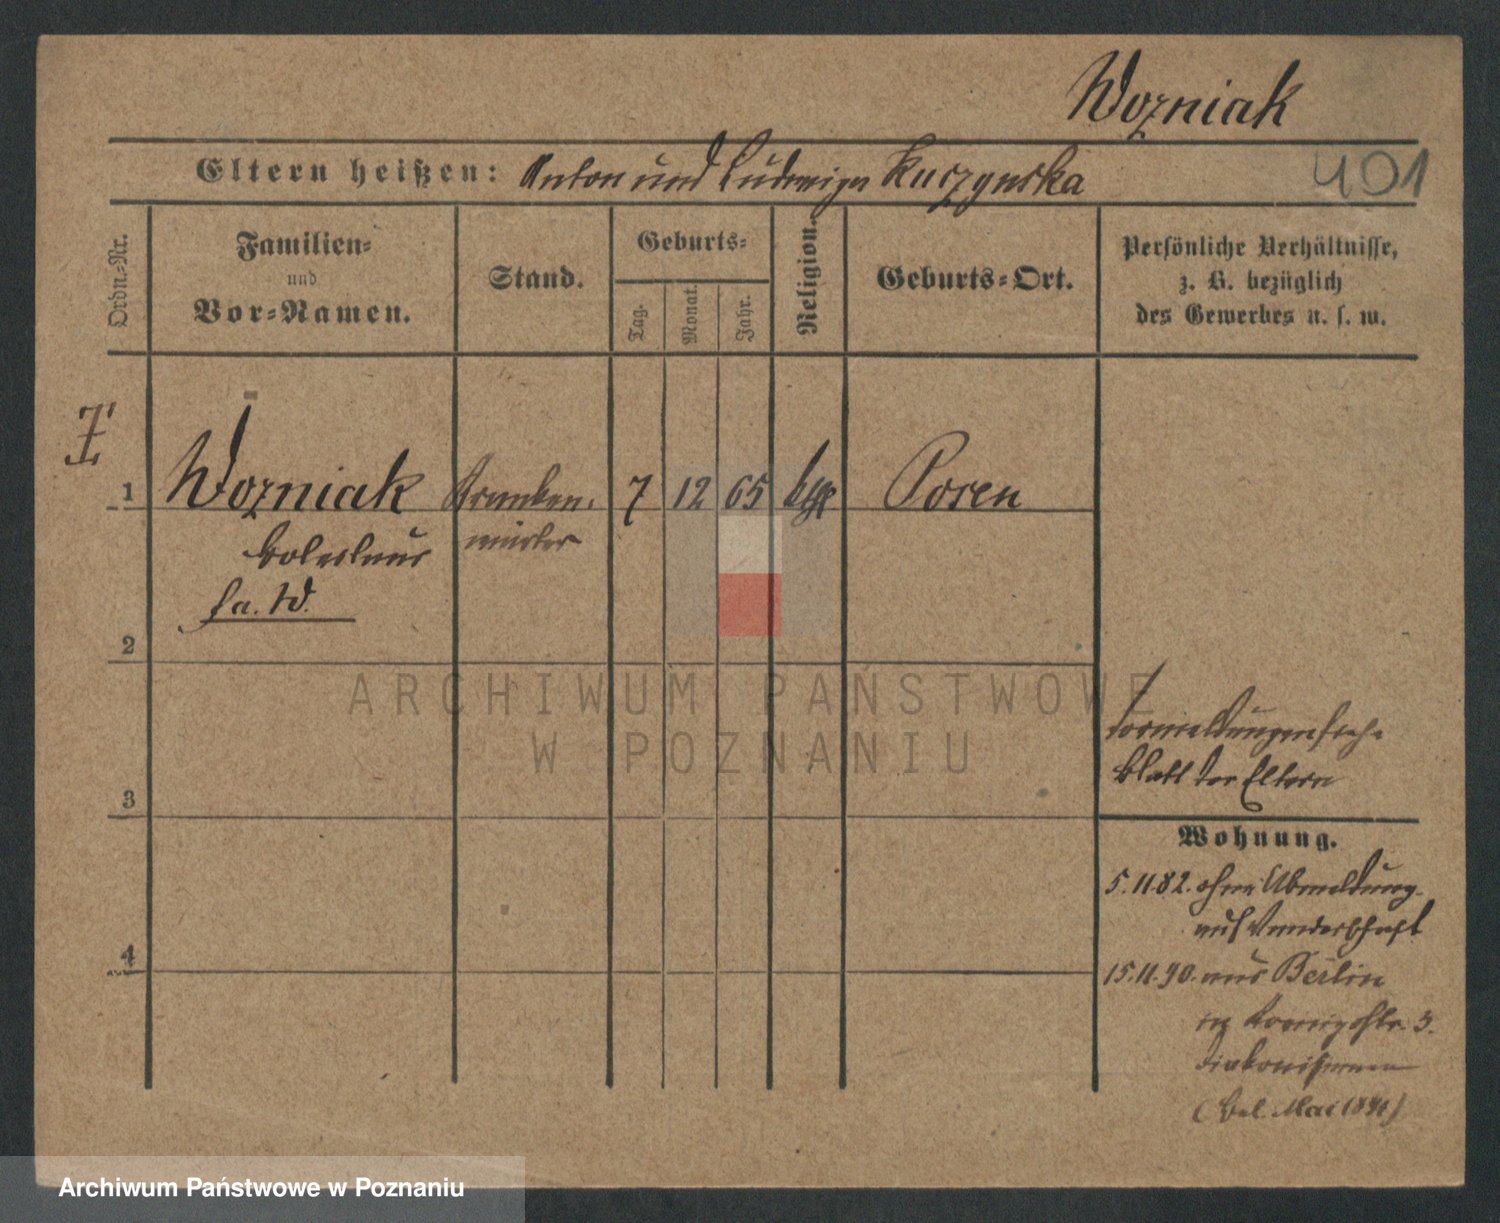 Wozniak
401
Eltern heißen: Anton und Ludwiga Kuczynska
Ordn.-Nr.
Familien-
und
Vor-Namen.
Stand.
Geburts-
Tag.
Monat.
Jahr.
Religion.
Geburts-Ort.
Persönliche Verhältnisse,
z. B. bezüglich
des Gewerbes u. s. w.
1 Wozniak Kranken- 7 12 65 Posen
Boleslaus wärter
2
3
4
ARCHIWUM PAŃSTWOWE
W POZNANIU
Vormeldungen siehe
Blatt der Eltern
Wohnung.
5.11.82. ohne Abmeldung
auf Wanderschaft
15.11.90. aus Berlin
3.
Diakonissenan
Mai
Archiwum Państwowe w Poznaniu